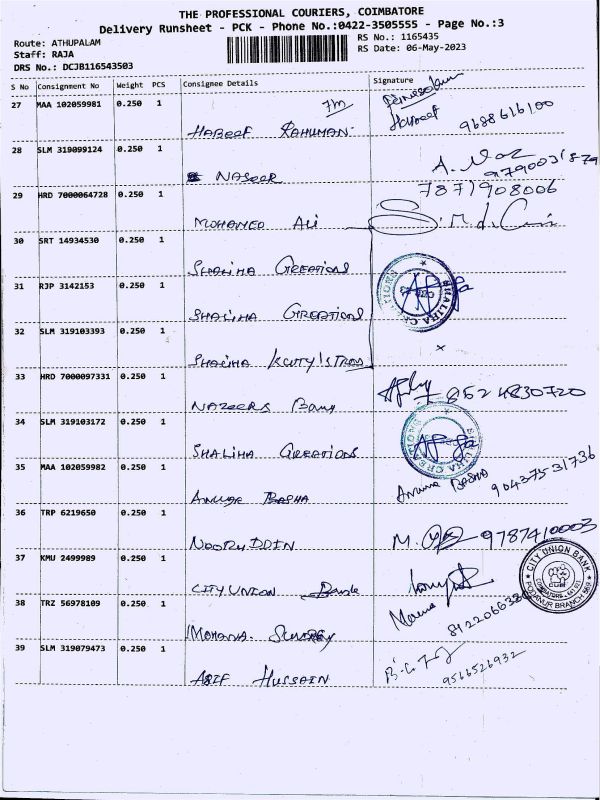 THE PROFESSIONAL COURIERS, COIMBATORE
Delivery Runsheet - PCK - Phone No.:0422-3505555 - Page No.:3
Route: ATHUPALAM
RS No.: 1165435
Staff: RAJA
RS Date: 06-May-2023
DRS No.: DCJB116543503
S No Consignment No Weight PCS Consignee Details Signature
27 MAA 102059981 0.250 1
HABEEF RAHUMAN
9688616100
28 SLM 319099124 0.250 1
NASEER
A.
9790031879
29 HRD 7000064728 0.250 1
7871908006
MOHAMED ALI
30 SRT 14934530 0.250 1
SHALIHA CREATIONS
31 RJP 3142153 0.250 1
SHALIHA CREATIONS
32 SLM 319103393 0.250 1
SHALIHA
33 HRD 7000097331 0.250 1
8524830720
NAZEERS
34 SLM 319103172 0.250 1
SHALIHA CREATIONS
35 MAA 102059982 0.250 1
ANWAR BASHA
BASHA 90437531736
36 TRP 6219650 0.250 1
NOORUDDIN
M. 9787410003
37 KMU 2499989 0.250 1
CITY UNION Bank
CITY UNION BANK
38 TRZ 56978109 0.250 1
MOHANA
39 SLM 319079473 0.250 1
ASIF HUSSAIN
9566526932